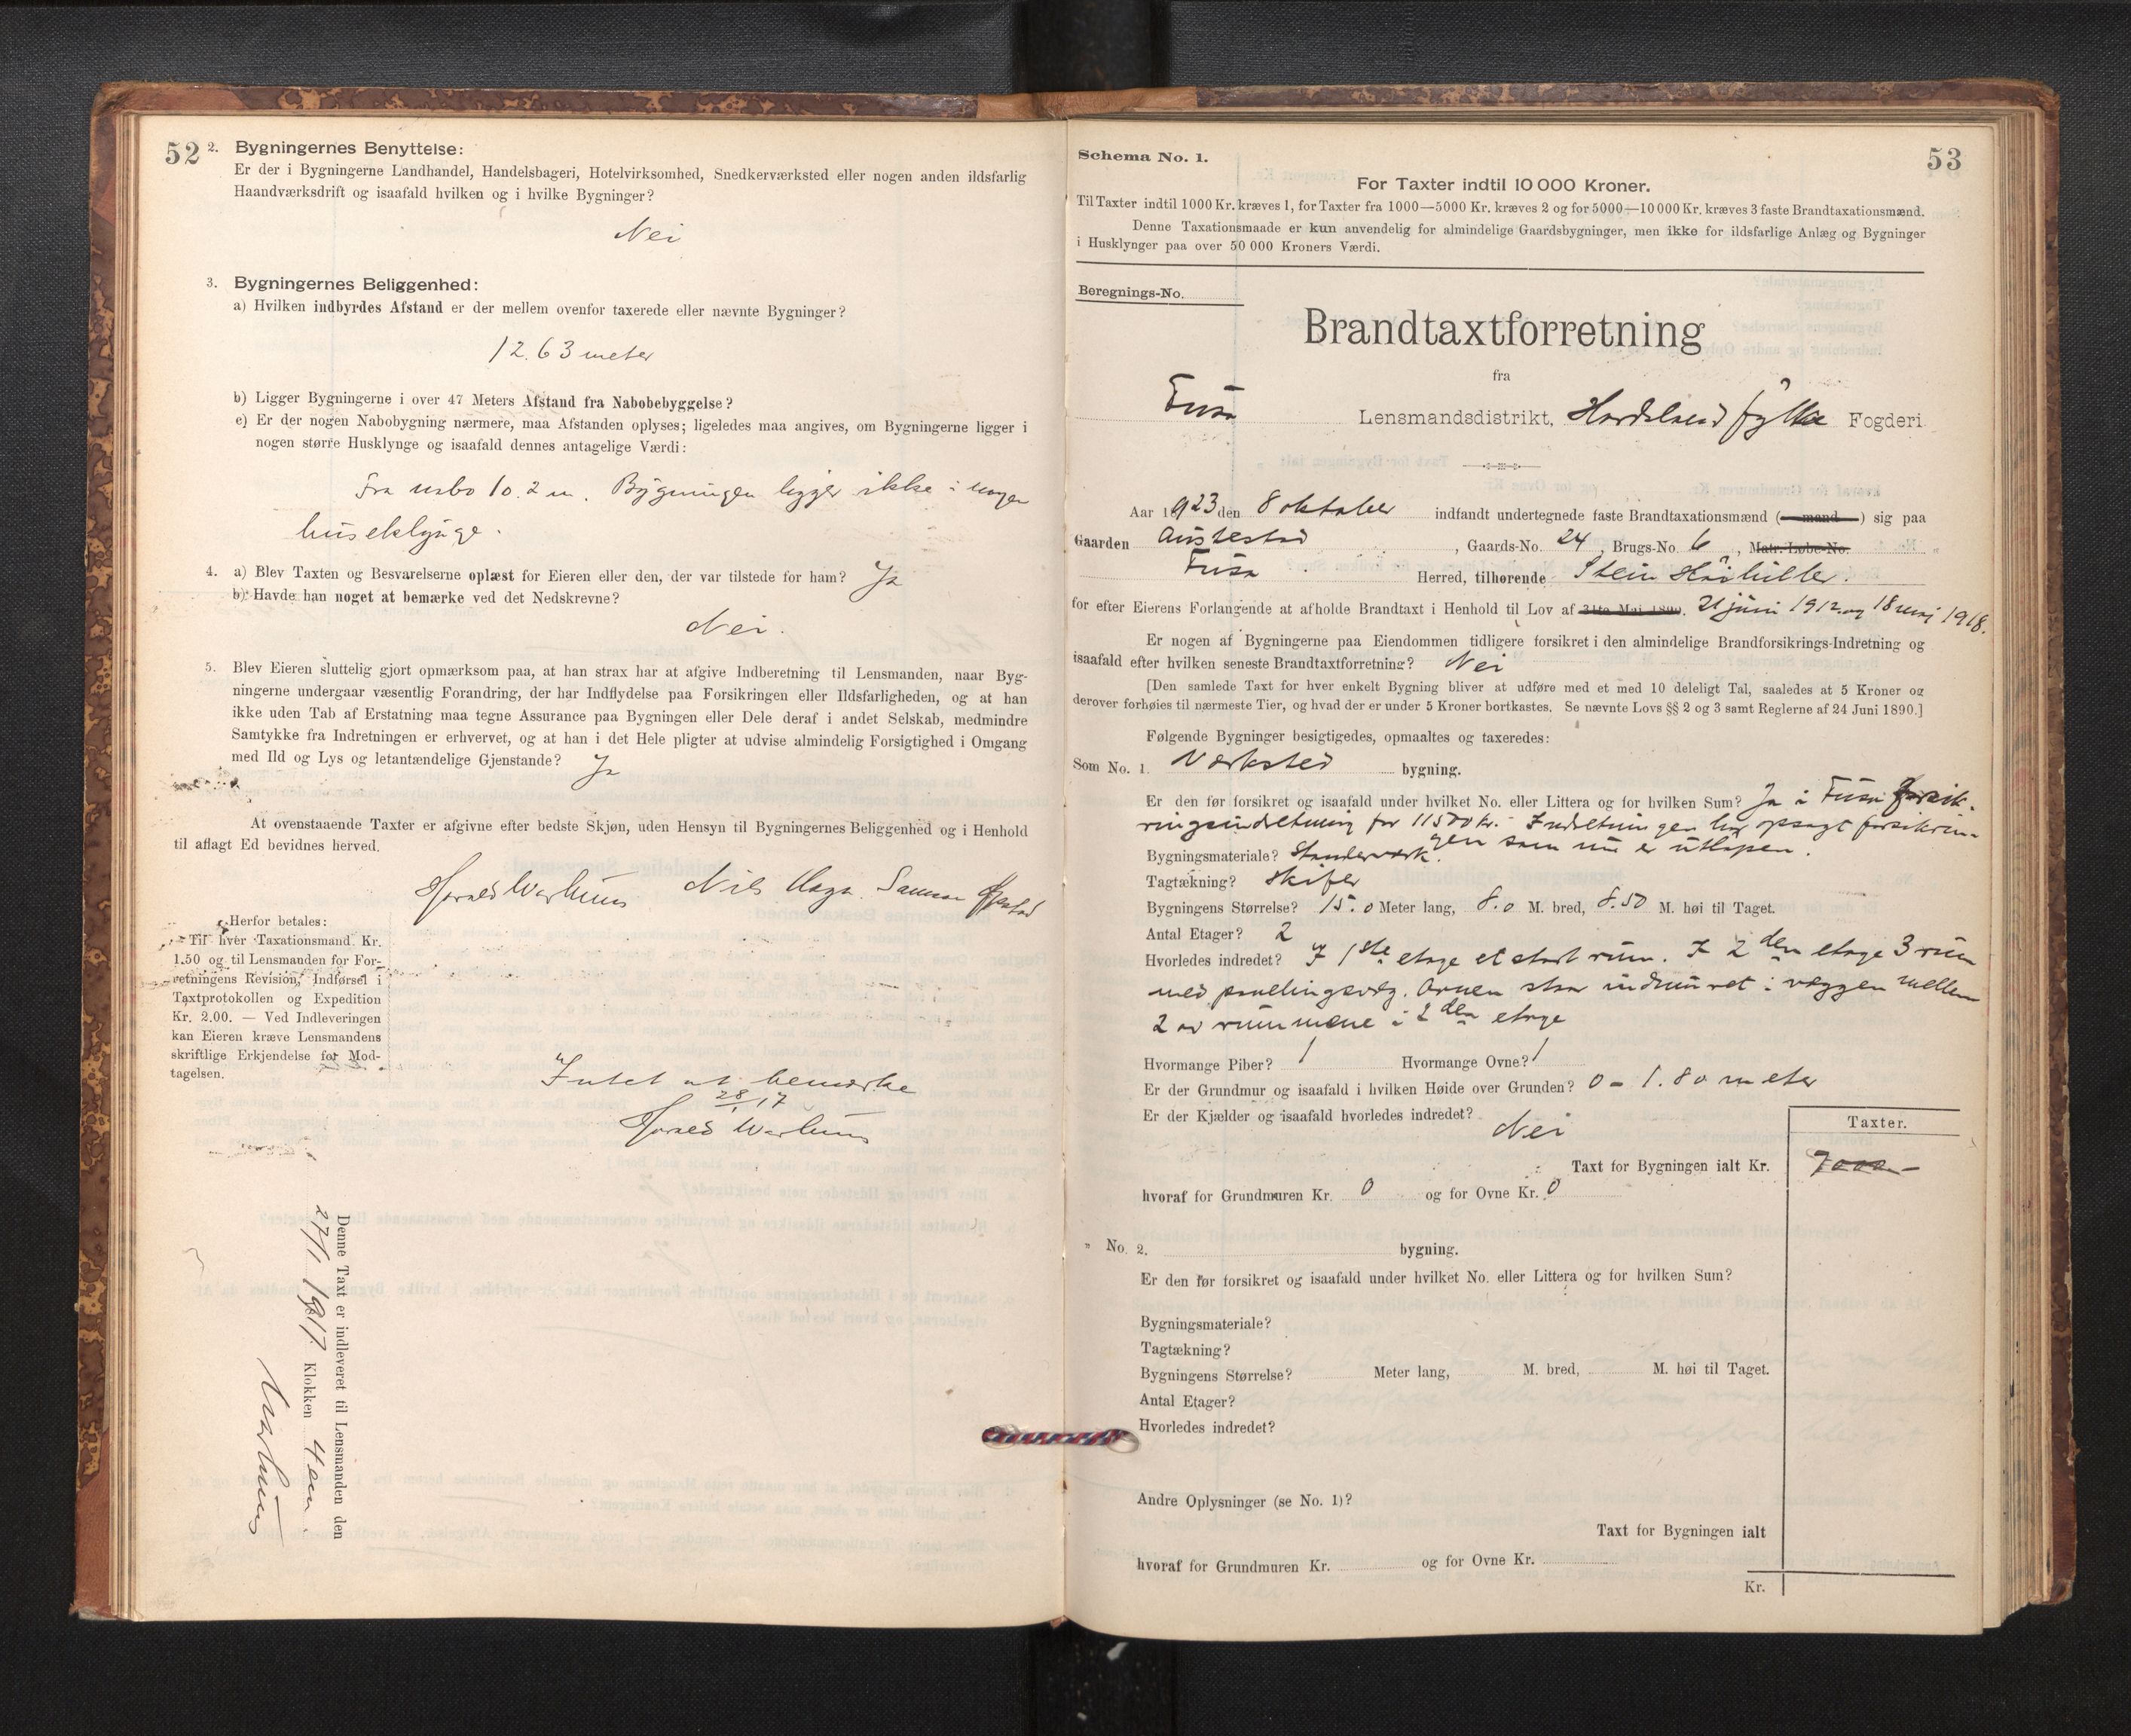 52
2. Bygningernes Benyttelse:
Er der i Bygningerne Landhandel, Handelsbageri, Hotelvirksomhed, Snedkerværksted eller nogen anden ildsfarlig
Haandværksdrift og isaafald hvilken og i hvilke Bygninger?
Nei
3. Bygningernes Beliggenhed:
a) Hvilken indbyrdes Afstand er der mellem ovenfor taxerede eller nævnte Bygninger?
12.63 meter
b) Ligger Bygningerne i over 47 Meters Afstand fra Nabobebyggelse?
c) Er der nogen Nabobygning nærmere, maa Afstanden oplyses; ligeledes maa angives, om Bygningerne ligger i
nogen større Husklynge og isaafald dennes antagelige Værdi:
Fra nabo 10.2 m. Bygningen ligger ikke i nogen
huseklynge.
4. a) Blev Taxten og Besvarelserne oplæst for Eieren eller den, der var tilstede for ham? Ja
b) Havde han noget at bemærke ved det Nedskrevne?
Nei.
5. Blev Eieren sluttelig gjort opmærksom paa, at han strax har at afgive Indberetning til Lensmanden, naar Byg-
ningerne undergaar væsentlig Forandring, der har Indflydelse paa Forsikringen eller Ildsfarligheden, og at han
ikke uden Tab af Erstatning maa tegne Assurance paa Bygningen eller Dele deraf i andet Selskab, medmindre
Samtykke fra Indretningen er erhvervet, og at han i det Hele pligter at udvise almindelig Forsigtighed i Omgang
med Ild og Lys og letantændelige Gjenstande? Ja
At ovenstaaende Taxter er afgivne efter bedste Skjøn, uden Hensyn til Bygningernes Beliggenhed og i Henhold
til aflagt Ed bevidnes herved.
Nils
Herfor betales:
Til hver Taxationsmand Kr.
1.50 og til Lensmanden for For-
retningens Revision, Indførsel i
Taxtprotokollen og Expedition
Kr. 2.00. — Ved Indleveringen
kan Eieren kræve Lensmandens
skriftlige Erkjendelse for Mod-
tagelsen.
Intet at bemærke
28/1 17
Denne Taxt er indleveret til Lensmanden den
27/1 1917. Klokken 4 em.
53
Schema No. 1.
For Taxter indtil 10 000 Kroner.
Til Taxter indtil 1000 Kr. kræves 1, for Taxter fra 1000—5000 Kr. kræves 2 og for 5000—10 000 Kr. kræves 3 faste Brandtaxationsmænd.
Denne Taxationsmaade er kun anvendelig for almindelige Gaardsbygninger, men ikke for ildsfarlige Anlæg og Bygninger
i Husklynger paa over 50 000 Kroners Værdi.
Beregnings-No.
Brandtaxtforretning
fra
Fusa Lensmandsdistrikt, Hordaland fylke Fogderi
Aar 1923 den 8 oktober indfandt undertegnede faste Brandtaxationsmænd (— mand —) sig paa
Gaarden Austestad, Gaards-No. 24, Brugs-No. 6, Matr. Løbe-No.
Fusa Herred, tilhørende Stein
for efter Eierens Forlangende at afholde Brandtaxt i Henhold til Lov af 31te Mai 1890. 21 juni 1912 og 18 1918.
Er nogen af Bygningerne paa Eiendommen tidligere forsikret i den almindelige Brandforsikrings-Indretning og
isaafald efter hvilken seneste Brandtaxtforretning? Nei
[Den samlede Taxt for hver enkelt Bygning bliver at udføre med et med 10 deleligt Tal, saaledes at 5 Kroner og
derover forhøies til nærmeste Tier, og hvad der er under 5 Kroner bortkastes. Se nævnte Lovs §§ 2 og 3 samt Reglerne af 24 Juni 1890.]
Følgende Bygninger besigtigedes, opmaaltes og taxeredes:
Som No. 1. Verksted bygning.
Er den før forsikret og isaafald under hvilket No. eller Littera og for hvilken Sum? Ja i Fusa forsik-
ringsindretning for 11500 kr. Indretningen har opsagt forsikrin-
gen som nu er utløpen.
Bygningsmateriale? Standerverk
Tagtækning? Skifer
Bygningens Størrelse? 15.0 Meter lang, 8.0 M. bred, 8.50 M. høi til Taget.
Antal Etager? 2
Hvorledes indredet? I 1ste etage et stort rum. I 2den etage 3 rum
med panelingsvæg. Ovnen staar indmuret i væggen mellem
2 av rummene i 2den etage
Hvormange Piber? 1 Hvormange Ovne? 1
Er der Grundmur og isaafald i hvilken Høide over Grunden? 0 - 1.80 meter
Er der Kjælder og isaafald hvorledes indredet? Nei
Taxter.
Taxt for Bygningen ialt Kr. 7000.-
hvoraf for Grundmuren Kr. 0 og for Ovne Kr. 0
" No. 2. bygning.
Er den før forsikret og isaafald under hvilket No. eller Littera og for hvilken Sum?
Bygningsmateriale?
Tagtækning?
Bygningens Størrelse? Meter lang, M. bred, M. høi til Taget.
Antal Etager?
Hvorledes indredet?
Andre Oplysninger (se No. 1)?
Taxt for Bygningen ialt
hvoraf for Grundmuren Kr. og for Ovne Kr.
Kr.